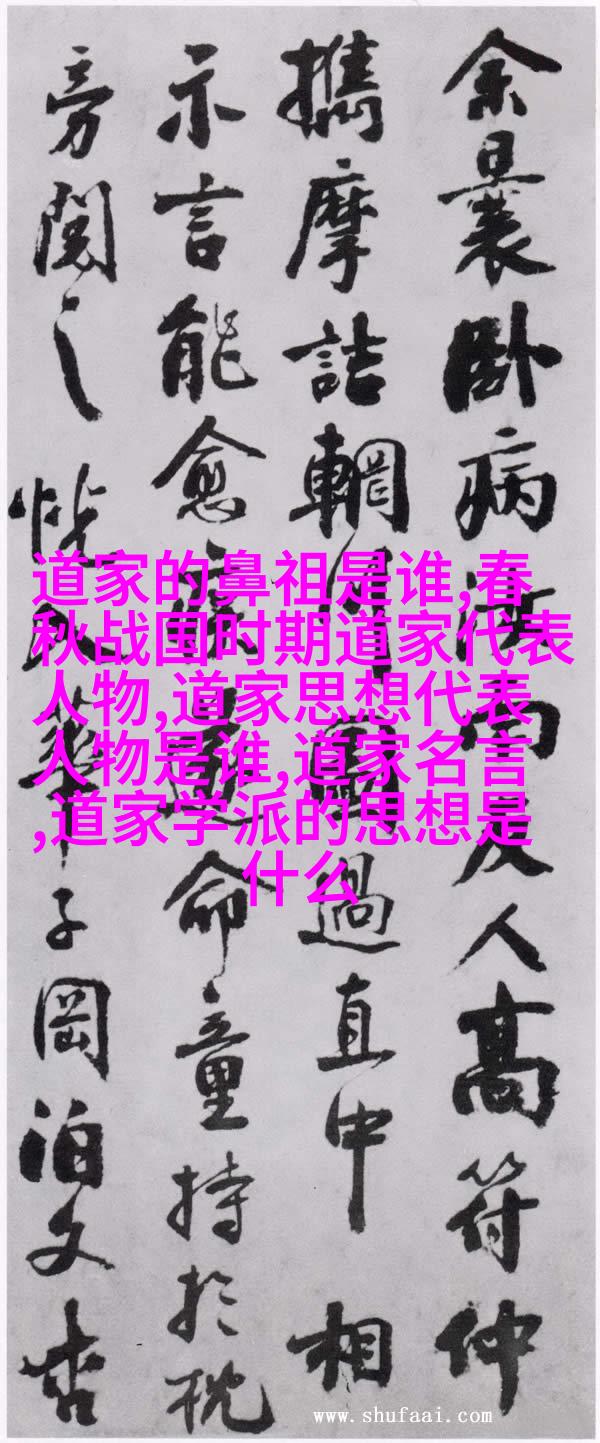 道家的鼻祖是谁,春
秋战国时期道家代表
人物,道家思想代表
人物是谁,道家名言
,道家学派的思想是
什么
余曩卧病南友人高符仲
攜摩詰輞川圖過直中相
示言能愈疾遂命童持於枕
旁閱之恍入華子岡泊文杏
www.shufaai.com